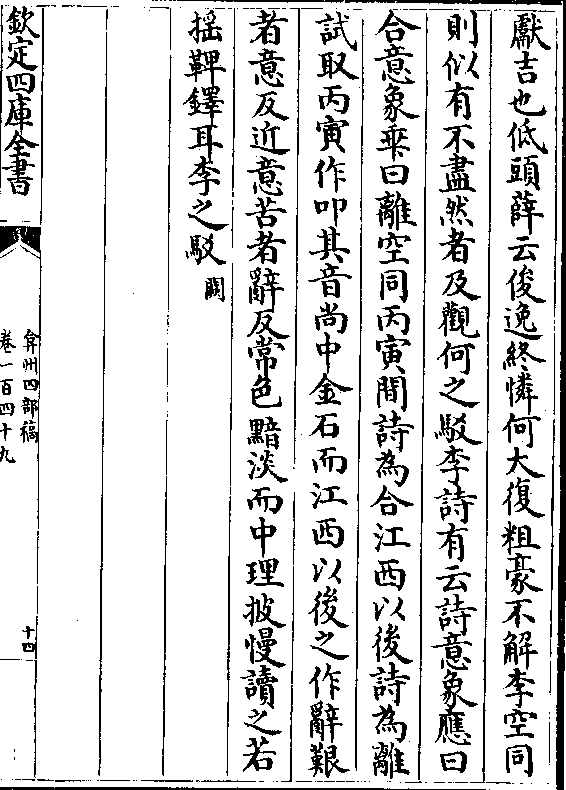 獻吉也低頭薛云俊逸終憐何大復粗豪不解李空同
則似有不盡然者及觀何之駁李詩有云詩意象應曰
合意象乖曰離空同丙寅間詩為合江西以後詩為離
試取丙寅作叩其音尚中金石而江西以後之作辭艱
者意反近意苦者辭反常色黯淡而中理披慢讀之若
揺鞞鐸耳李之駁闕
欽定四庫全書
弇州四部稿
卷一百四十九
十四